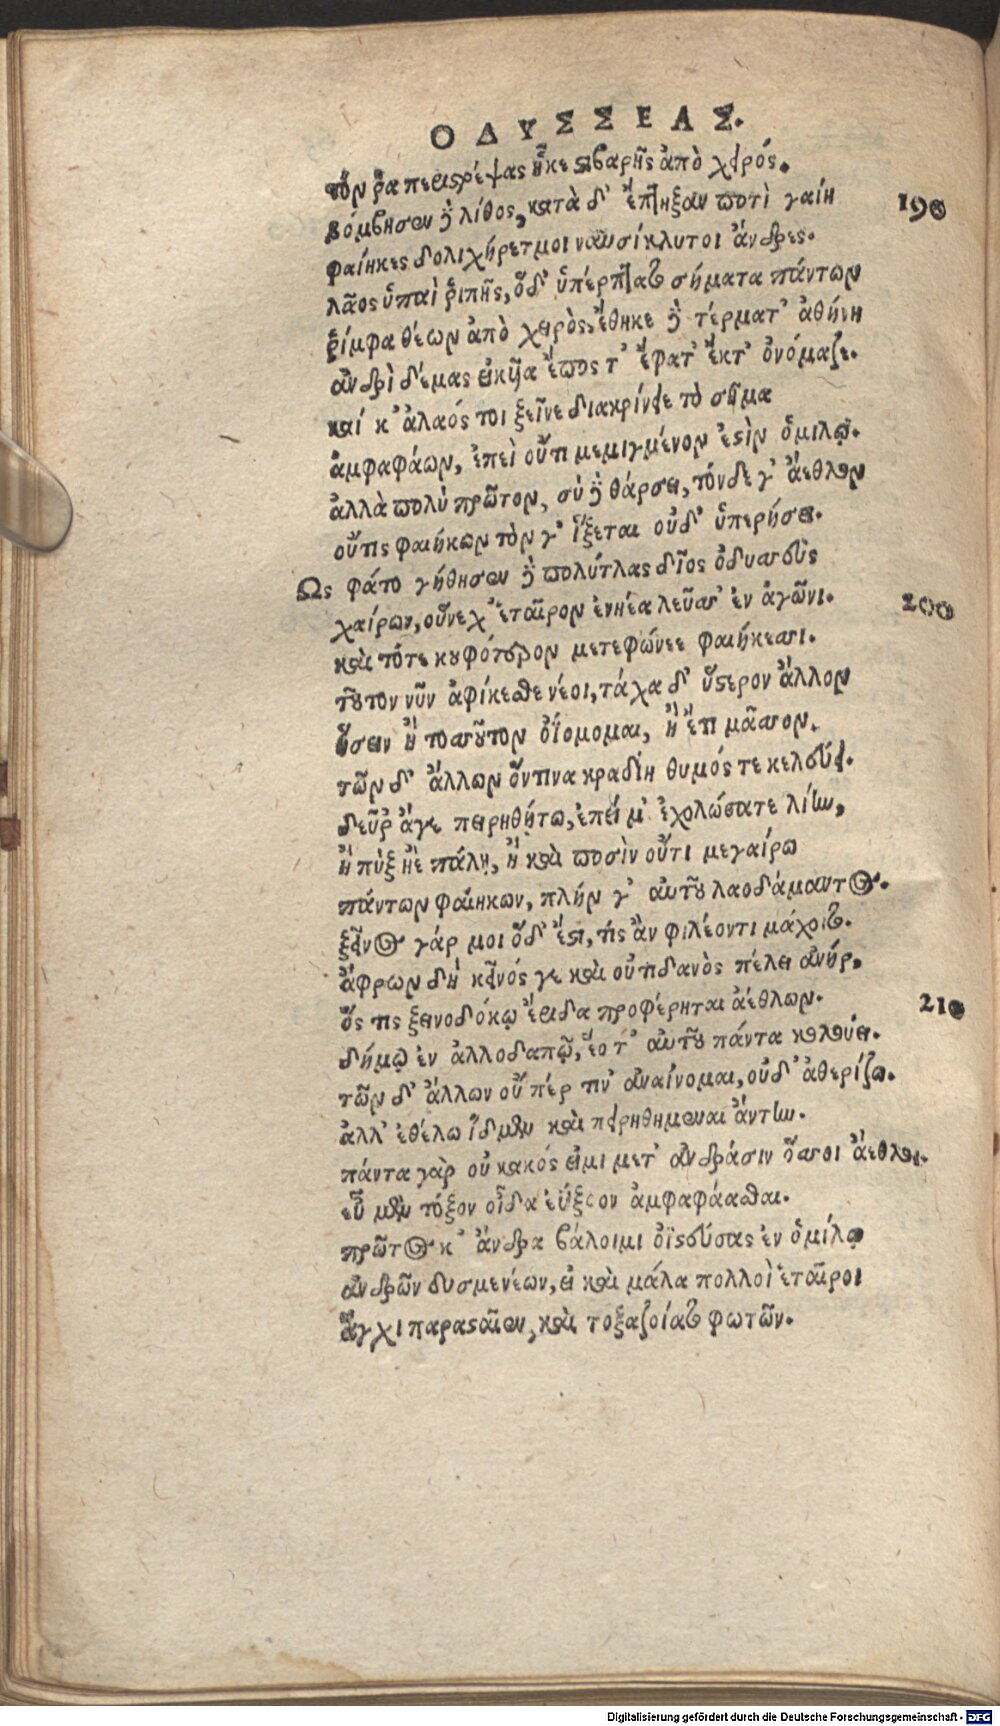 ΟΔΥΣΣΕΑΣ.
τόν ῥα περιστρέψας ἧκε στιβαρῆς ἀπὸ χειρός.
βόμβησεν δὲ λίθος, κατὰ δ' ἔπτηξαν ποτὶ γαίῃ
190
φαίηκες δολιχήρετμοι ναυσίκλυτοι ἄνδρες.
λᾶος ὑπαὶ ῥιπῆς, ὅδ' ὑπέρπτατο σήματα πάντων
ῥίμφα θέων ἀπὸ χειρὸς, ἔθηκε δὲ τέρματ' ἀθήνη
ἀνδρὶ δέμας εἰκυῖα ἔπος τ' ἔφατ' ἔκτ' ὀνόμαζε.
καί κ' ἀλαός τοι ξεῖνε διακρίνειε τὸ σῆμα
ἀμφαφάων, ἐπεὶ οὔτι μεμιγμένον ἐστὶν ὁμίλῳ.
ἀλλὰ πολὺ πρῶτον, σὺ δὲ θάρσει, τόνδε γ' ἄεθλον
οὔτις φαιήκων τὸν γ' ἵξεται οὐδ' ὑπερήσει.
Ως φάτο γήθησεν δὲ πολύτλας δῖος ὀδυσσεὺς
χαίρων, οὕνεχ' ἑταῖρον ἐνηέα λεῦσσ' ἐν ἀγῶνι.
200
καὶ τότε κουφότερον μετεφώνεε φαιήκεσσι.
τοῦτον νῦν ἀφίκεσθε νέοι, τάχα δ' ὕστερον ἄλλον
ἥσειν ἢ τοσσοῦτον ὀΐομομαι, ἢ ἔτι μᾶσσον.
τῶν δ' ἄλλων ὅντινα κραδίη θυμός τε κελεύει.
δεῦρ' ἄγε πειρηθήτω, ἐπεί μ' ἐχολώσατε λίην,
ἢ πὺξ ἠὲ πάλῃ, ἢ καὶ ποσὶν οὔτι μεγαίρω
πάντων φαιήκων, πλήν γ' αὐτοῦ λαοδάμαντος.
ξεῖνος γάρ μοι ὅδ' ἐστι, τίς ἂν φιλέοντι μάχοιτο.
ἄφρων δὴ κεῖνός γε καὶ οὐτιδανὸς πέλει ἀνήρ,
ὅς τις ξεινοδόκῳ ἔριδα προφέρηται ἀέθλων.
210
δήμῳ ἐν ἀλλοδαπῷ, ἕο τ' αὐτοῦ πάντα κολούει.
τῶν δ' ἄλλων οὔ πέρ τιν' ἀναίνομαι, οὐδ' ἀθερίζω.
ἀλλ' ἐθέλω ἴδμεν καὶ πειρηθήμεναι ἄντην.
πάντα γὰρ οὐ κακός εἰμι μετ' ἀνδράσιν ὅσσοι ἄεθλοι.
εὖ μὲν τόξον οἶδα ἐΰξοον ἀμφαφάασθαι.
πρῶτος κ' ἄνδρα βάλοιμι ὀϊστεύσας ἐν ὁμίλῳ
ἀνδρῶν δυσμενέων, εἰ καὶ μάλα πολλοὶ ἑταῖροι
ἄγχι παρασταῖεν, καὶ τοξαζοίατο φωτῶν.
Digitalisierung gefördert durch die Deutsche Forschungsgemeinschaft - DFG